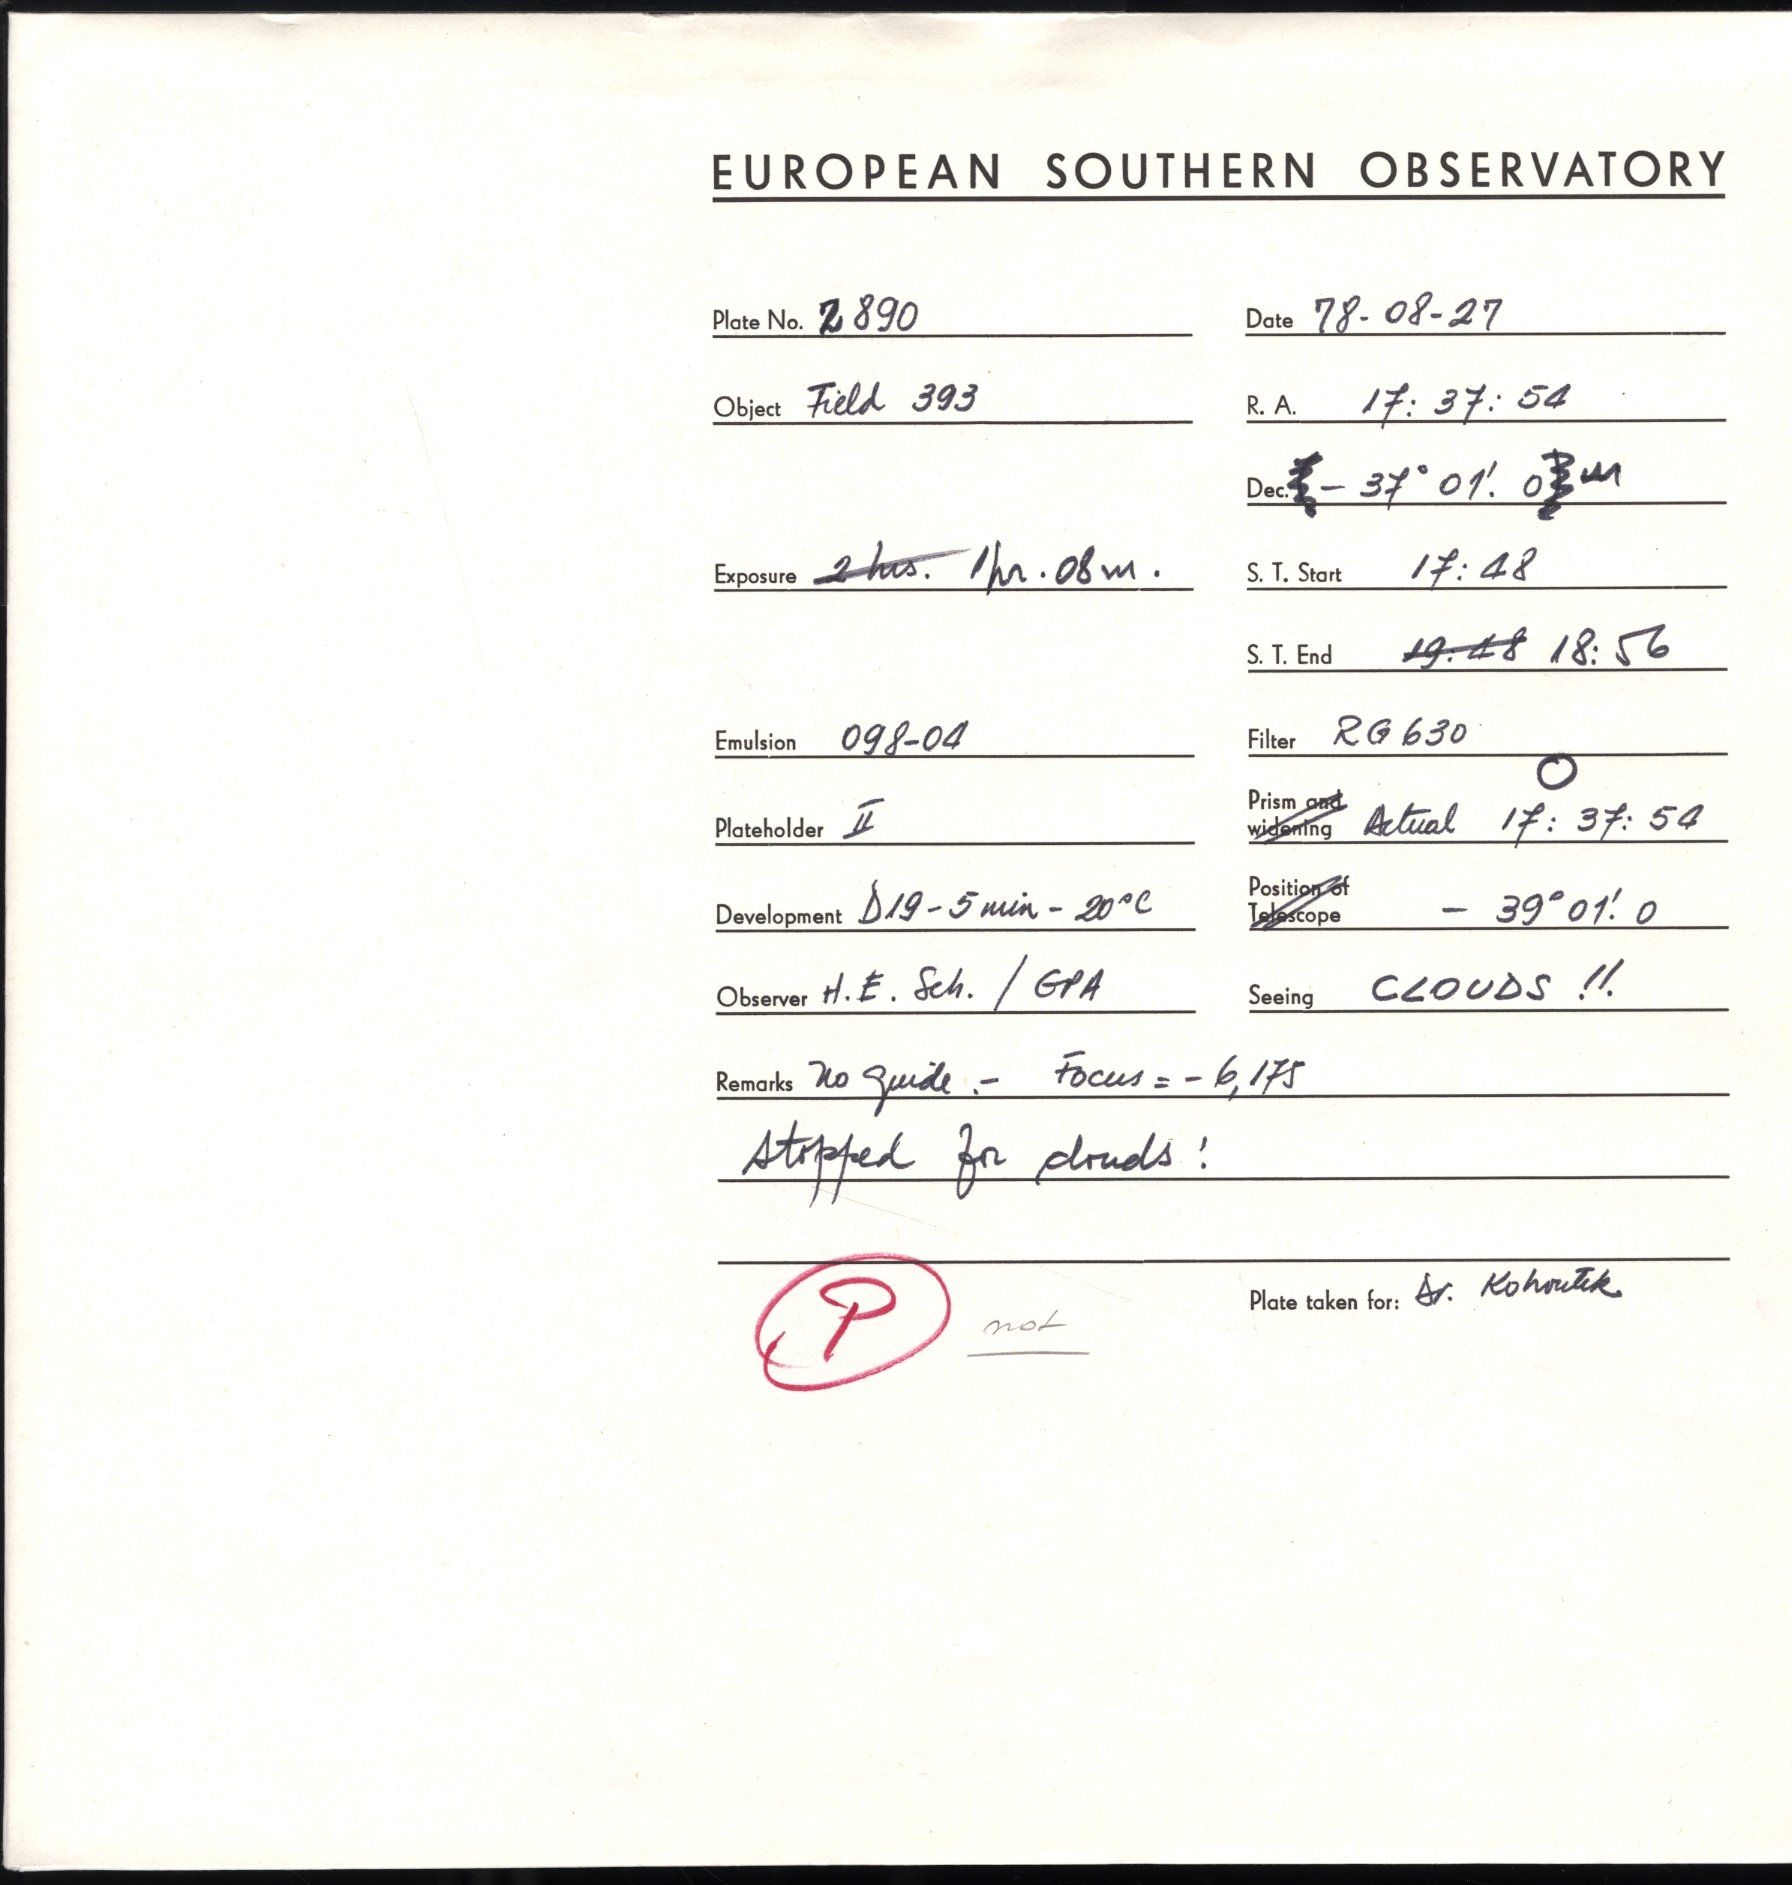 EUROPEAN SOUTHERN OBSERVATORY
Plate No. 2890
Date 78-08-27
Object Field 393
R. A. 17: 37: 54
Dec. - 37° 01'. 0
Exposure 2 hrs. 1 hr. 08 m.
S. T. Start 17: 48
S. T. End 19: 48 18: 56
Emulsion 098-04
Filter RG 630
Plateholder II
Prism and widening Actual 17: 37: 54
Development D19 - 5 min - 20°C
Position of Telescope - 39° 01'. 0
Observer H. E. Sch. / GPA
Seeing CLOUDS !!
Remarks No guide .- Focus = - 6,175
Stopped for clouds !
P not
Plate taken for: Dr. Kohoutek